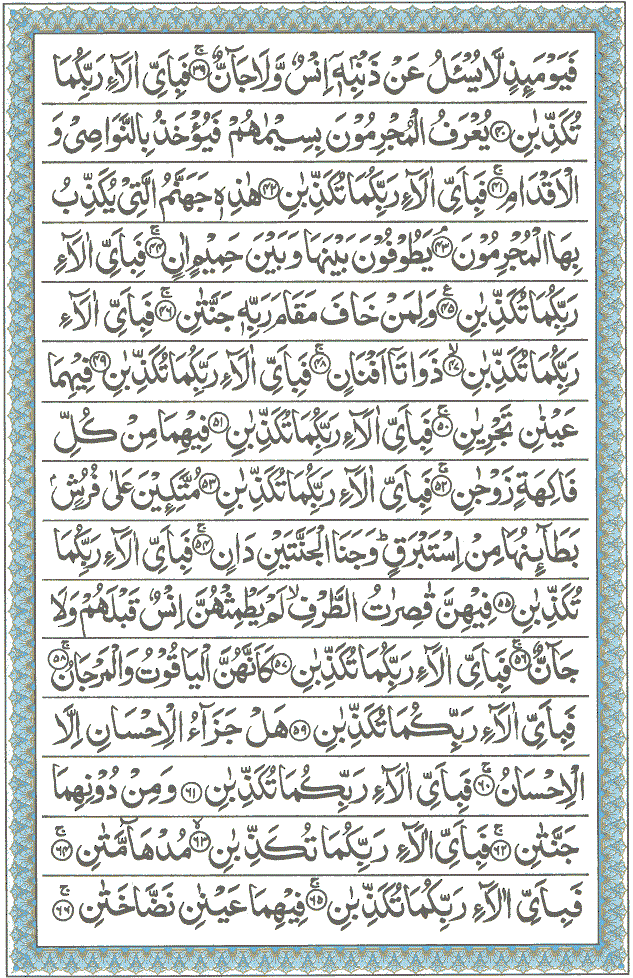 فَيَوْمَئِذٍ لَّا يُسْـَٔلُ عَنْ ذَنْۢبِهٖۤ اِنْسٌ وَّلَا جَآنٌّ ۚ﴿۳۹﴾ فَبِاَىِّ اٰلَآءِ رَبِّكُمَا
تُكَذِّبٰنِ ﴿۴۰﴾ يُعْرَفُ الْمُجْرِمُوْنَ بِسِيْمٰهُمْ فَيُؤْخَذُ بِالنَّوَاصِىْ وَ
الْاَقْدَامِ ۚ﴿۴۱﴾ فَبِاَىِّ اٰلَآءِ رَبِّكُمَا تُكَذِّبٰنِ ﴿۴۲﴾ هٰذِهٖ جَهَنَّمُ الَّتِىْ يُكَذِّبُ
بِهَا الْمُجْرِمُوْنَ ۘ﴿۴۳﴾ يَطُوْفُوْنَ بَيْنَهَا وَبَيْنَ حَمِيْمٍ اٰنٍ ۚ﴿۴۴﴾ فَبِاَىِّ اٰلَآءِ
رَبِّكُمَا تُكَذِّبٰنِ ﴿۴۵﴾ وَلِمَنْ خَافَ مَقَامَ رَبِّهٖ جَنَّتٰنِ ۚ﴿۴۶﴾ فَبِاَىِّ اٰلَآءِ
رَبِّكُمَا تُكَذِّبٰنِ ۙ﴿۴۷﴾ ذَوَاتَاۤ اَفْنَانٍ ۚ﴿۴۸﴾ فَبِاَىِّ اٰلَآءِ رَبِّكُمَا تُكَذِّبٰنِ ﴿۴۹﴾ فِيْهِمَا
عَيْنٰنِ تَجْرِيٰنِ ۚ﴿۵۰﴾ فَبِاَىِّ اٰلَآءِ رَبِّكُمَا تُكَذِّبٰنِ ﴿۵۱﴾ فِيْهِمَا مِنْ كُلِّ
فَاكِهَةٍ زَوْجٰنِ ۚ﴿۵۲﴾ فَبِاَىِّ اٰلَآءِ رَبِّكُمَا تُكَذِّبٰنِ ﴿۵۳﴾ مُتَّكِـِٕيْنَ عَلٰى فُرُشٍۢ
بَطَآىِٕنُهَا مِنْ اِسْتَبْرَقٍ ؕ وَجَنَا الْجَنَّتَيْنِ دَانٍ ۚ﴿۵۴﴾ فَبِاَىِّ اٰلَآءِ رَبِّكُمَا
تُكَذِّبٰنِ ﴿۵۵﴾ فِيْهِنَّ قٰصِرٰتُ الطَّرْفِ ۙ لَمْ يَطْمِثْهُنَّ اِنْسٌ قَبْلَهُمْ وَلَا
جَآنٌّ ۚ﴿۵۶﴾ فَبِاَىِّ اٰلَآءِ رَبِّكُمَا تُكَذِّبٰنِ ﴿۵۷﴾ كَاَنَّهُنَّ الْيَاقُوْتُ وَالْمَرْجَانُ ۚ﴿۵۸﴾
فَبِاَىِّ اٰلَآءِ رَبِّكُمَا تُكَذِّبٰنِ ﴿۵۹﴾ هَلْ جَزَآءُ الْاِحْسَانِ اِلَّا
الْاِحْسَانُ ۚ﴿۶۰﴾ فَبِاَىِّ اٰلَآءِ رَبِّكُمَا تُكَذِّبٰنِ ﴿۶۱﴾ وَمِنْ دُوْنِهِمَا
جَنَّتٰنِ ۚ﴿۶۲﴾ فَبِاَىِّ اٰلَآءِ رَبِّكُمَا تُكَذِّبٰنِ ۙ﴿۶۳﴾ مُدْهَآمَّتٰنِ ۚ﴿۶۴﴾
فَبِاَىِّ اٰلَآءِ رَبِّكُمَا تُكَذِّبٰنِ ۚ﴿۶۵﴾ فِيْهِمَا عَيْنٰنِ نَضَّاخَتٰنِ ۚ﴿۶۶﴾